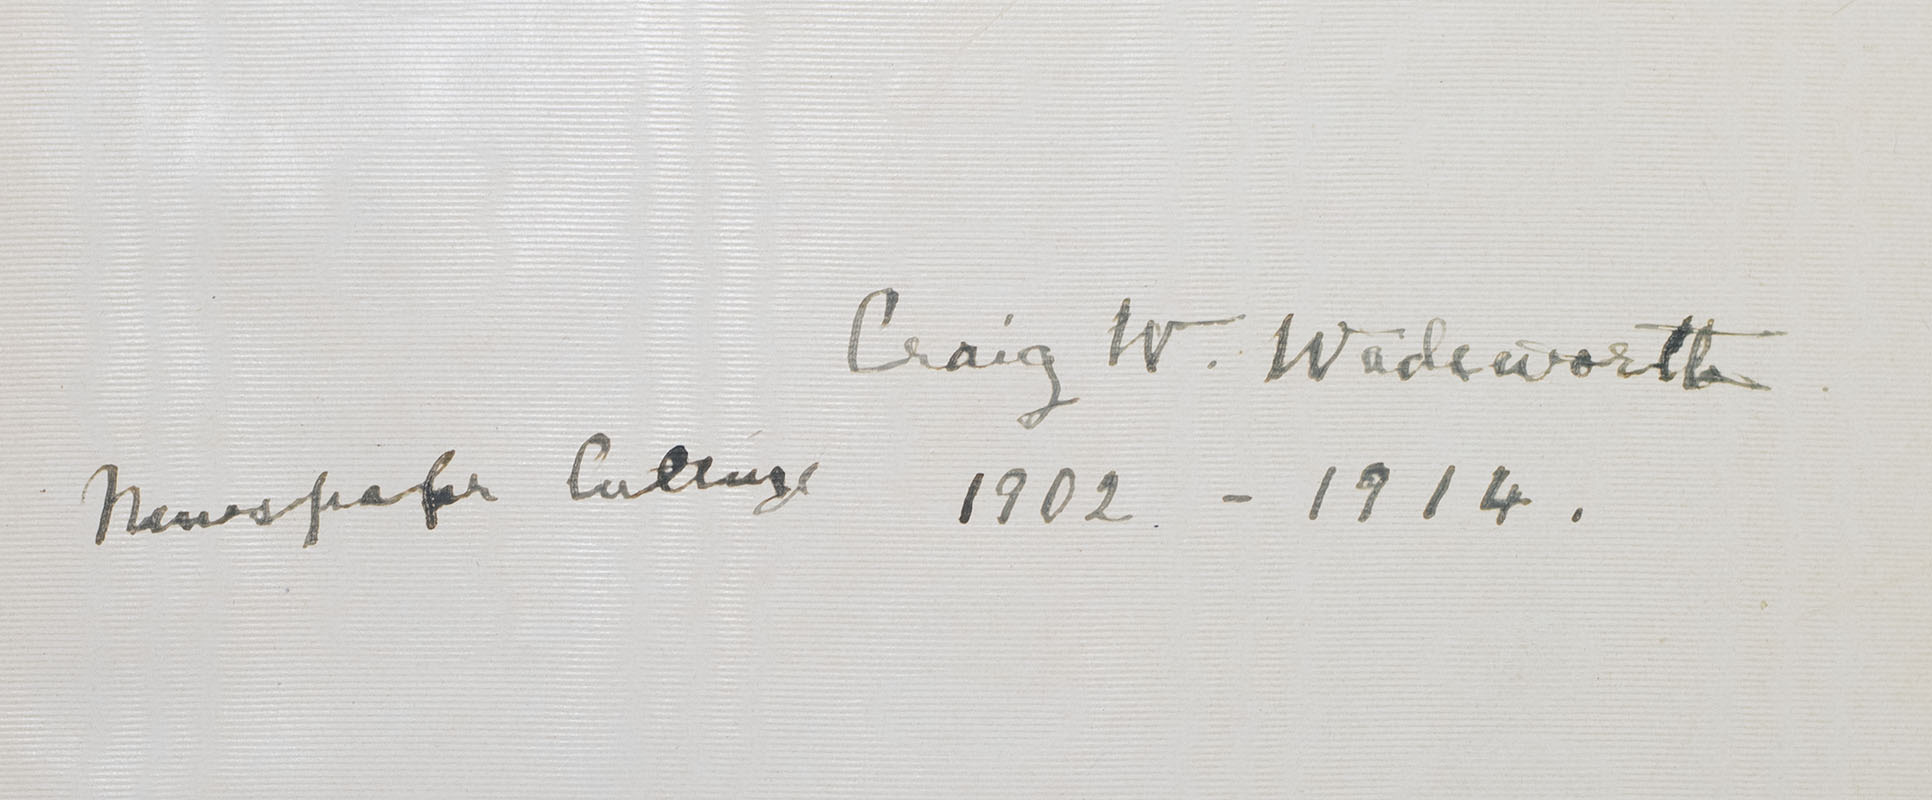 Craig W. Wadsworth
Newspaper Cuttings 1902 - 1914.